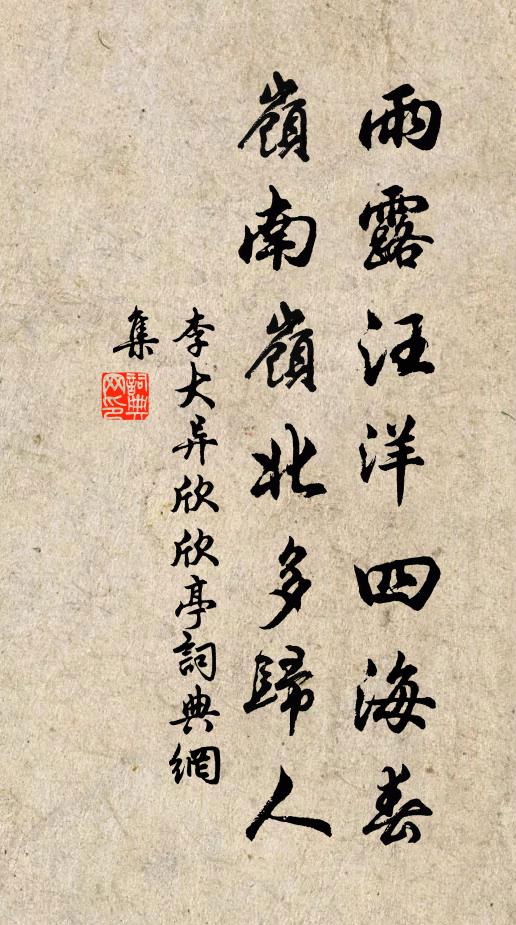 雨露汪洋四海春
嶺南嶺北多歸人
李大异欣欣亭詞典網
集
詞典
网印